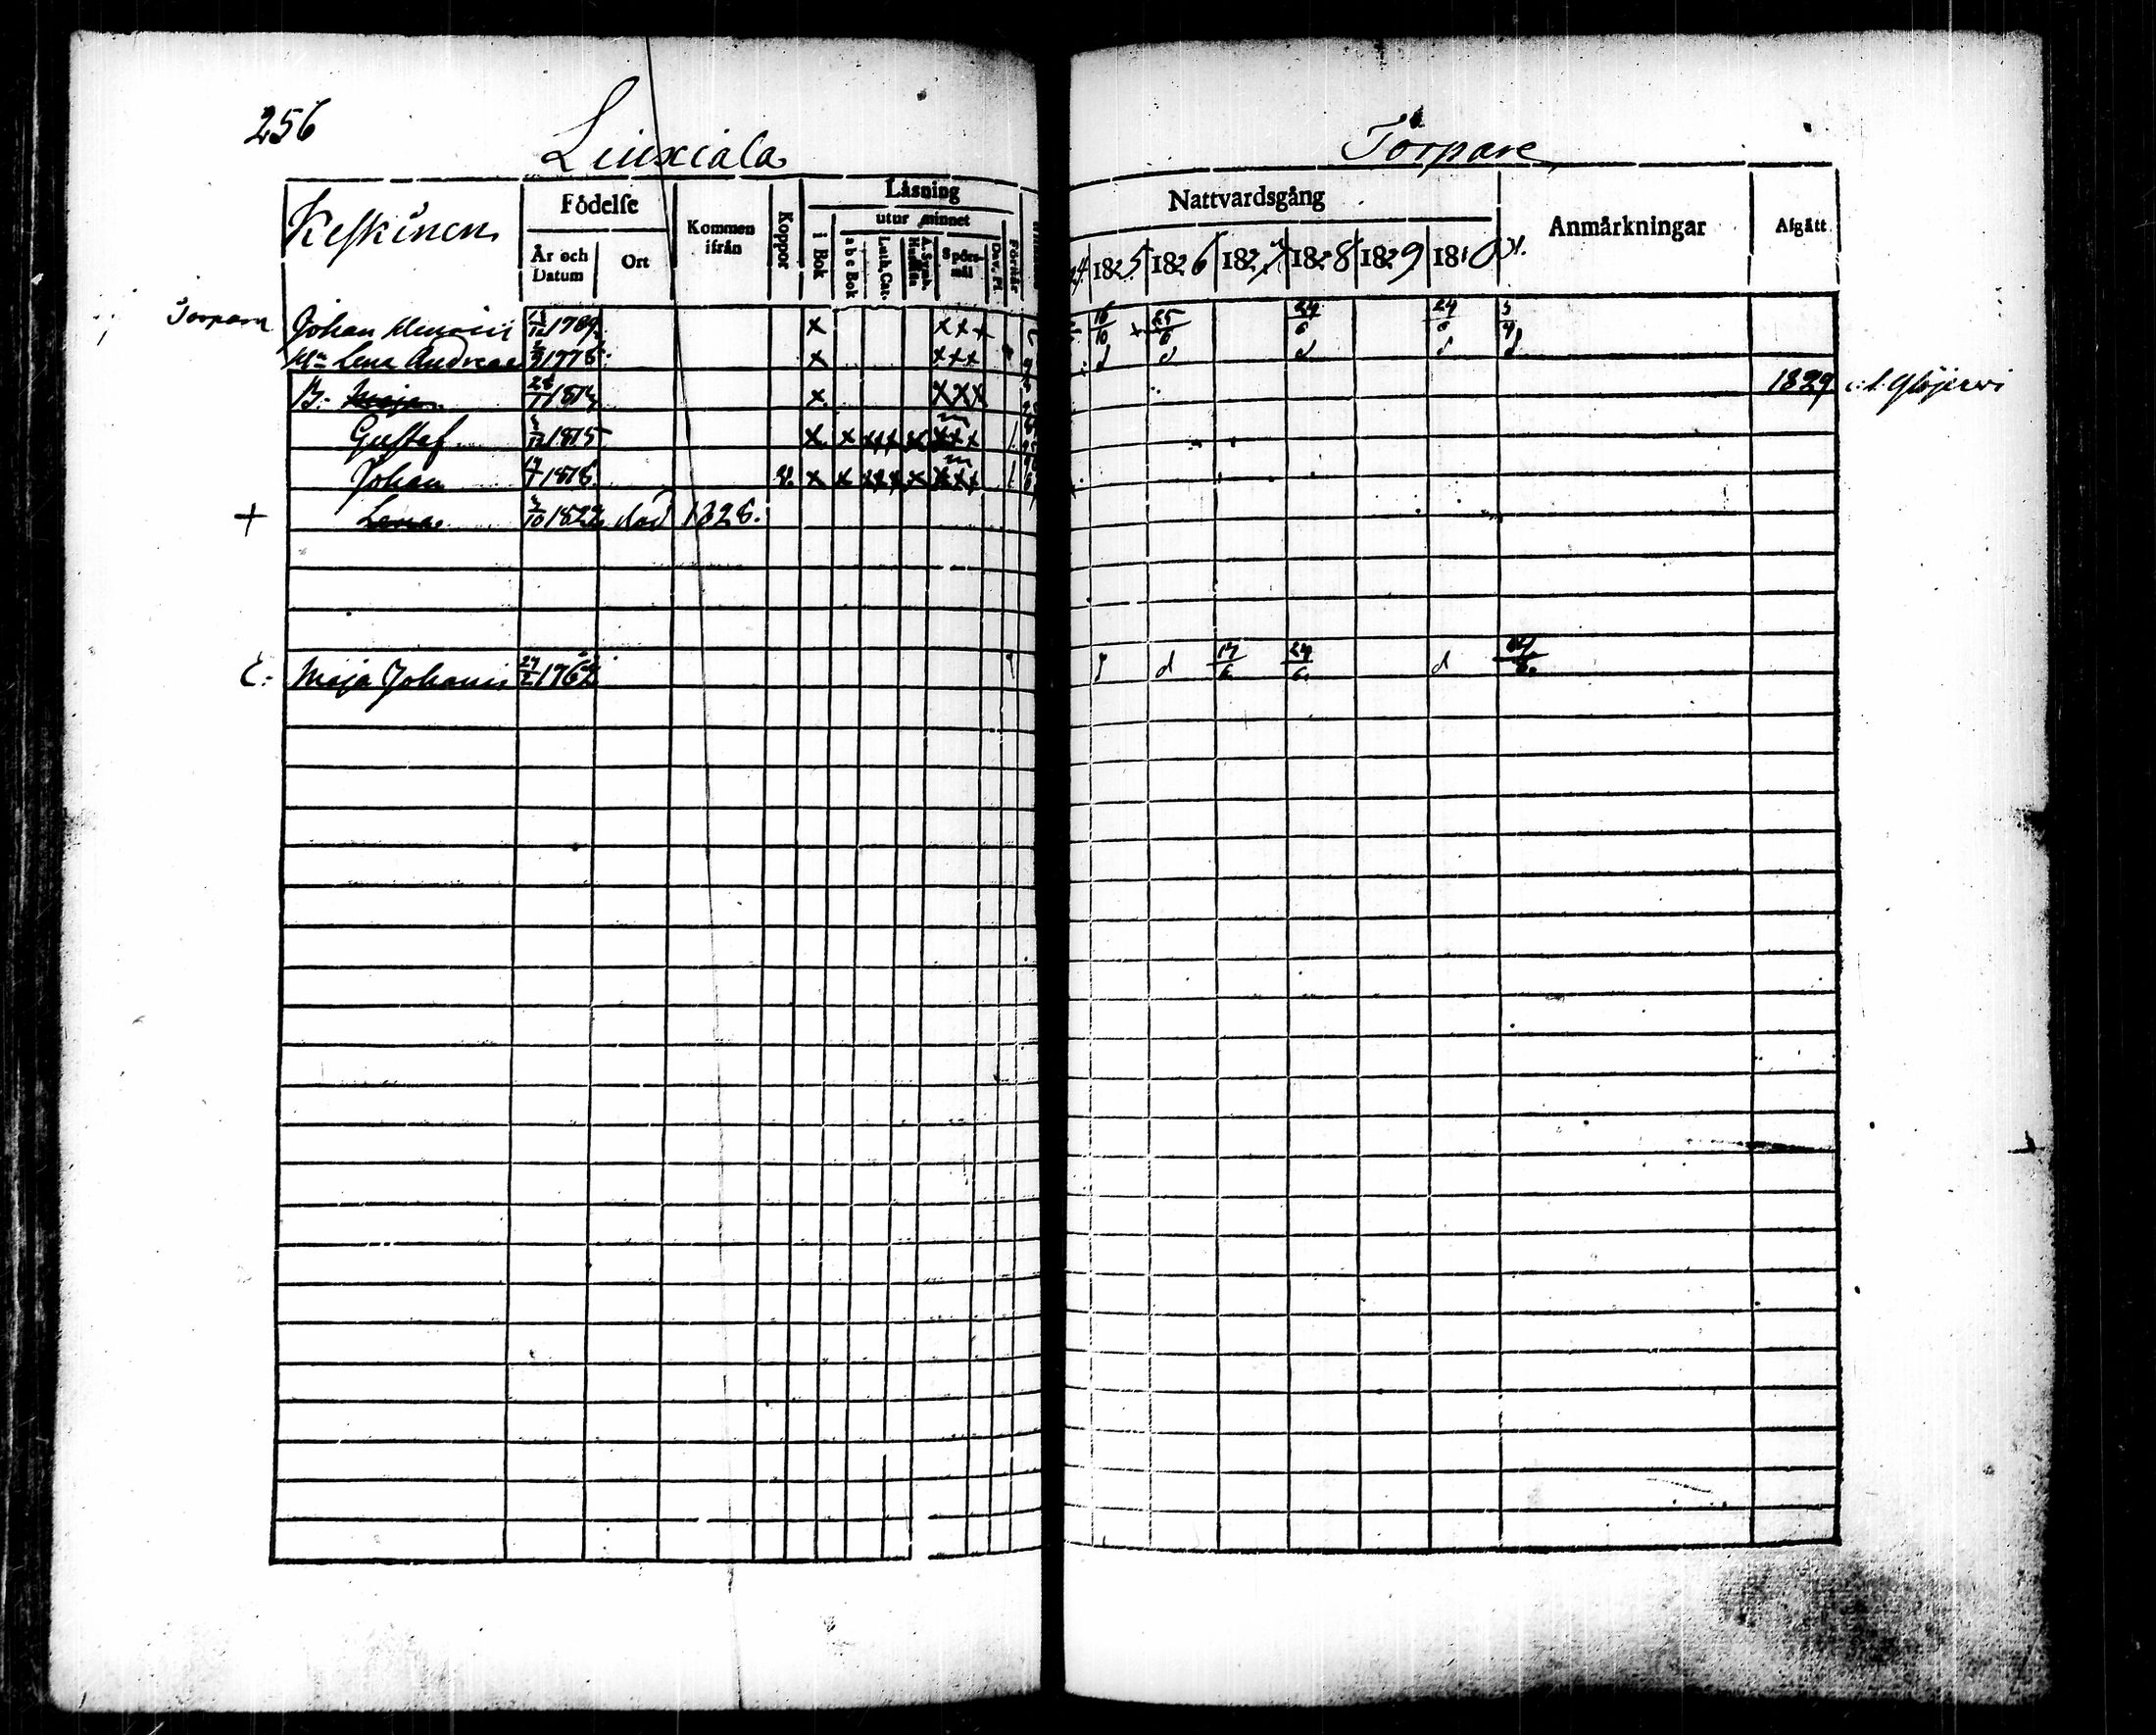 256
Liuxiala
Torpare
Keskinen
Födelse
År och Datum
Ort
Kommen ifrån
Koppor
Läsning
i Bok
utur minnet
a b c Bok
Luth. Cat.
Spörsmål
Dav. Ps.
Nattvardsgång
24. 1825. 1826 1827 1828 1829 1830 31.
Anmärkningar
Afgått
Torparn Johan 1789. x xxx 16/10 x 25/6 24/6 24/6
Hu Lena Andreae 1778. x xxx d d d d d
B. Maja 28/1 x xxx 1829
Gustaf 1815 x x xxx x xxx
Johan x x xxx x xxx
+ Lena 1822 död 1828.
E: Maja Johansd. 24/2 1762 d 17/6 24/6 d